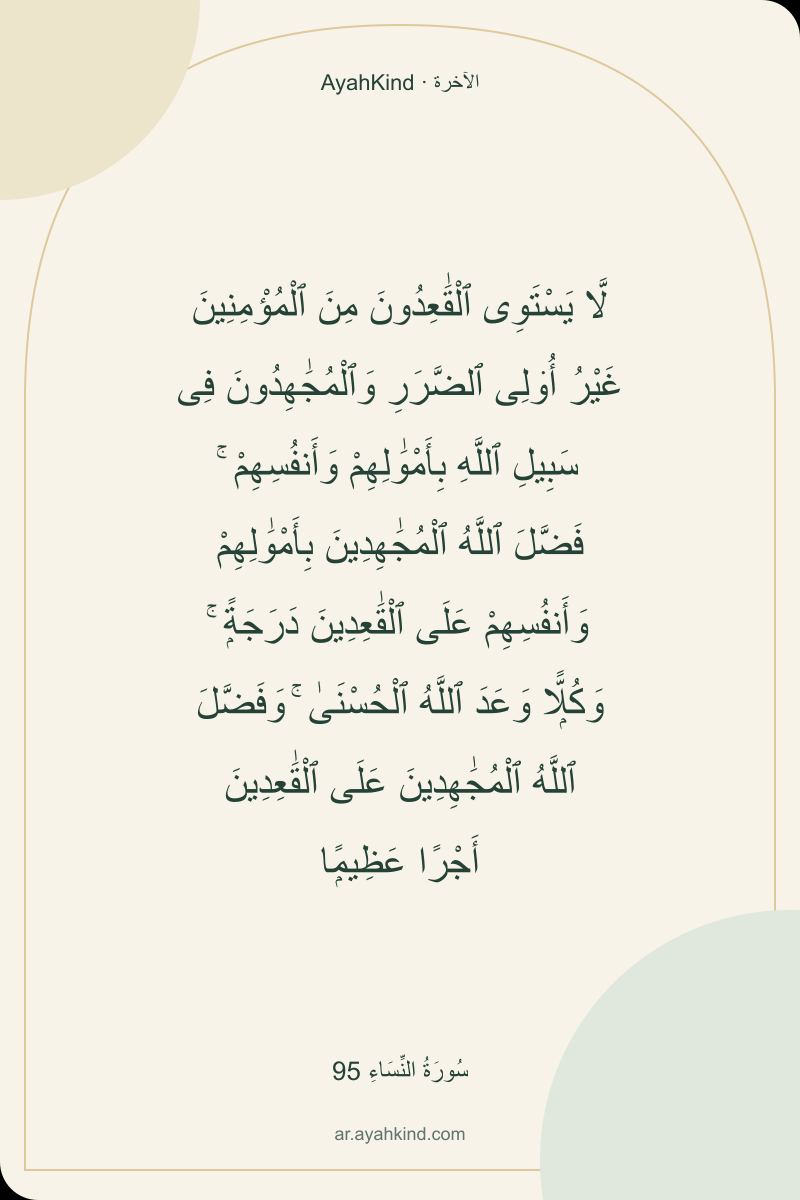 AyahKind · الآخرة
لَّا يَسْتَوِى ٱلْقَٰعِدُونَ مِنَ ٱلْمُؤْمِنِينَ
غَيْرُ أُو۟لِى ٱلضَّرَرِ وَٱلْمُجَٰهِدُونَ فِى
سَبِيلِ ٱللَّهِ بِأَمْوَٰلِهِمْ وَأَنفُسِهِمْ ۚ
فَضَّلَ ٱللَّهُ ٱلْمُجَٰهِدِينَ بِأَمْوَٰلِهِمْ
وَأَنفُسِهِمْ عَلَى ٱلْقَٰعِدِينَ دَرَجَةًۭ ۚ
وَكُلًّۭا وَعَدَ ٱللَّهُ ٱلْحُسْنَىٰ ۚ وَفَضَّلَ
ٱللَّهُ ٱلْمُجَٰهِدِينَ عَلَى ٱلْقَٰعِدِينَ
أَجْرًا عَظِيمًۭا
سُورَةُ النِّسَاءِ 95
ar.ayahkind.com